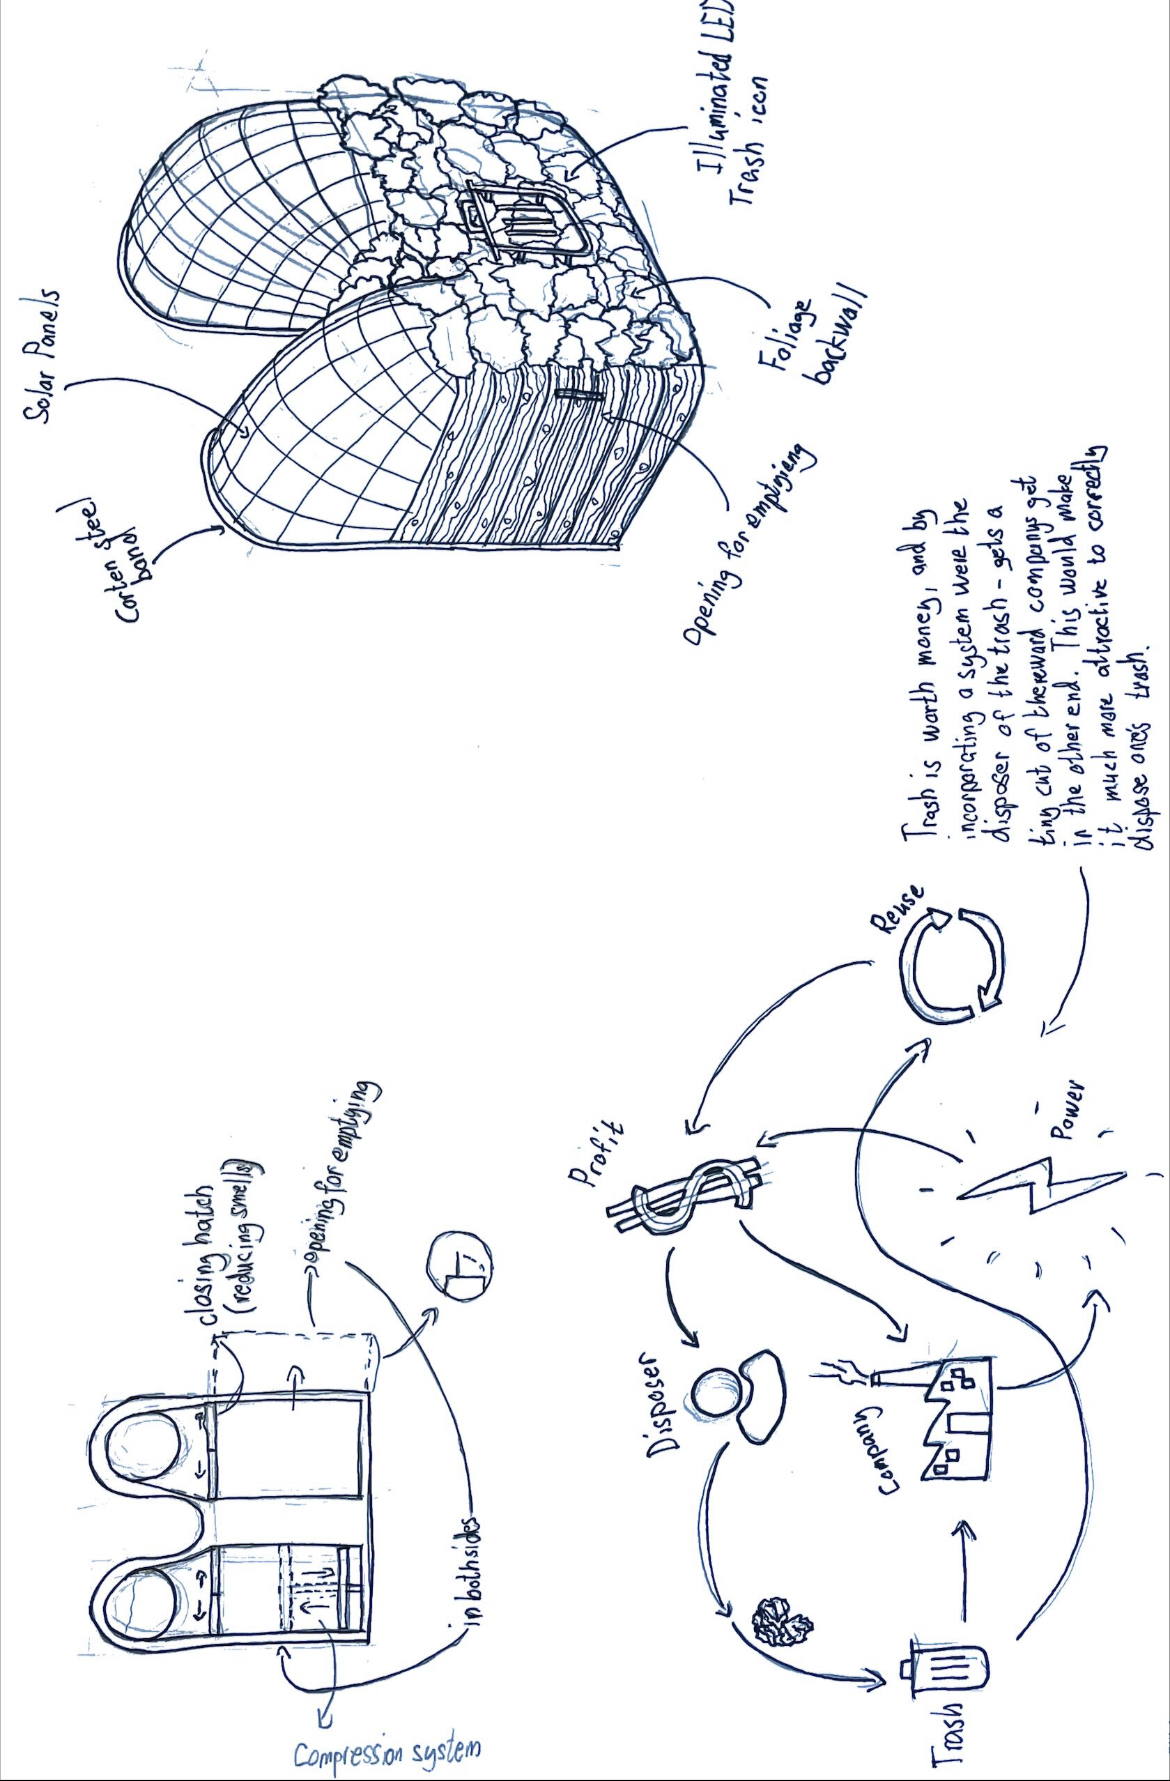 closing hatch
(reducing smells)
opening for emptying
in both sides
Compression system
Corten steel
band
Solar Panels
Opening for emptyieng
Foliage
backwall
Illuminated LED
Trash icon
Profit
Disposer
Company
Trash
Reuse
Power
Trash is worth money, and by
incorporating a system were the
disposer of the trash - gets a
tiny cut of the reward companys get
in the other end. This would make
it much more attractive to correctly
dispose one's trash.